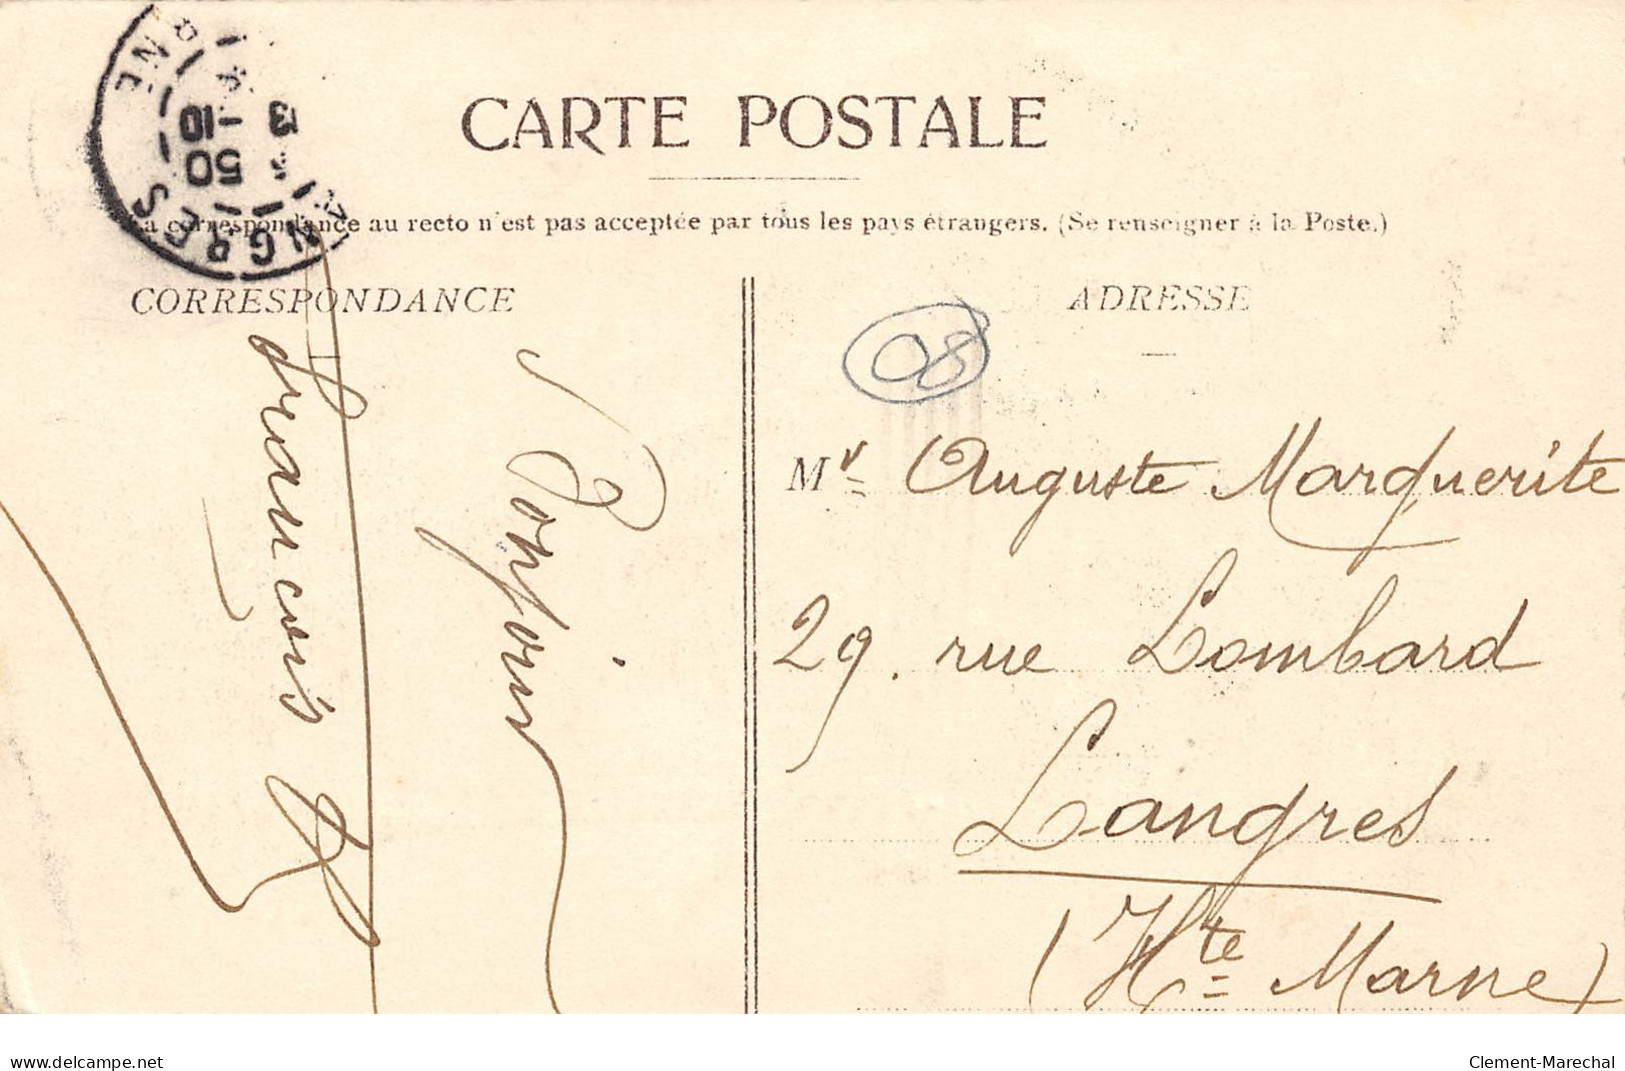 CARTE POSTALE
La correspondance au recto n'est pas acceptée par tous les pays étrangers. (Se renseigner à la Poste.)
CORRESPONDANCE
ADRESSE
08
Mr Auguste Marguerite
29. rue Lombard
Langres
(Hte Marne)
Bonjour
François
LANGRES
RNE
10 50
3
delcampe.net
Clement-Marechal